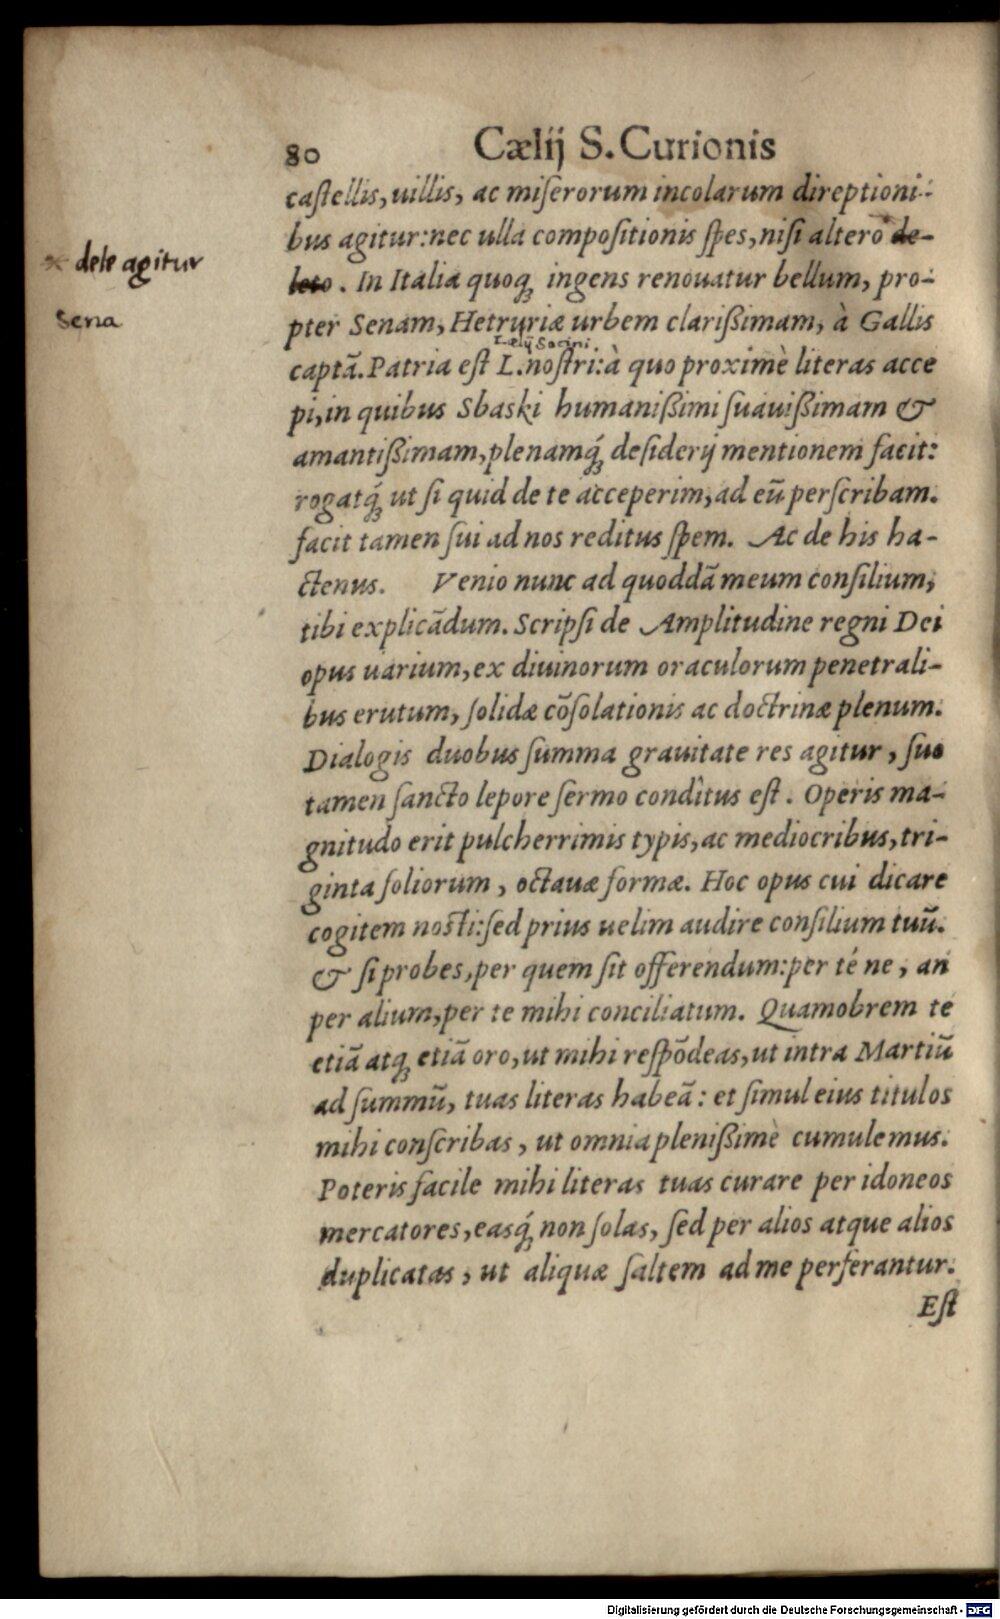 80 Cælij S. Curionis
castellis, uillis, ac miserorum incolarum direptioni-
bus agitur: nec ulla compositionis spes, nisi altero de-
leto. In Italia quoq; ingens renouatur bellum, pro-
pter Senam, Hetruriæ urbem clarißimam, à Gallis
Lælij Socini.
captā. Patria est L. nostri: à quo proximè literas acce
pi, in quibus Sbaski humanißimi suauißimam &
amantißimam, plenamq́; desiderij mentionem facit:
rogatq́; ut si quid de te acceperim, ad eū perscribam.
facit tamen sui ad nos reditus spem. Ac de his ha-
ctenus. Venio nunc ad quoddā meum consilium,
tibi explicādum. Scripsi de Amplitudine regni Dei
opus uarium, ex diuinorum oraculorum penetrali-
bus erutum, solidæ cōsolationis ac doctrinæ plenum.
Dialogis duobus summa grauitate res agitur, suo
tamen sancto lepore sermo condîtus est. Operis ma-
gnitudo erit pulcherrimis typis, ac mediocribus, tri-
ginta foliorum, octauæ formæ. Hoc opus cui dicare
cogitem nosti: sed prius uelim audire consilium tuū.
& si probes, per quem sit offerendum: per té ne, an
per alium, per te mihi conciliatum. Quamobrem te
etiā atq; etiā oro, ut mihi respōdeas, ut intra Martiū
ad summū, tuas literas habeā: et simul eius titulos
mihi conscribas, ut omnia plenißimè cumulemus.
Poteris facile mihi literas tuas curare per idoneos
mercatores, easq́; non solas, sed per alios atque alios
duplicatas, ut aliquæ saltem ad me perferantur.
Est
x dele agitur
Sena
Digitalisierung gefördert durch die Deutsche Forschungsgemeinschaft - DFG